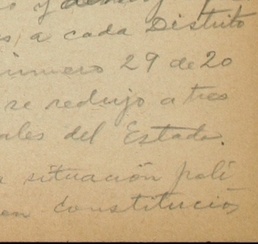 a cada Distrito
número 29 de 20
se redujo a tres
ales del Estado.
situación polí
constitució